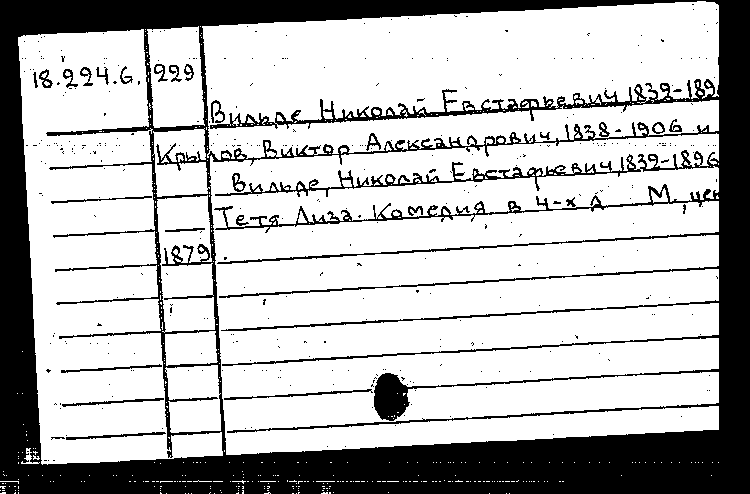 18.224.6. 229
Вильде, Николай Евстафьевич, 1832-189
Крылов, Виктор Александрович, 1838-1906 и
Вильде, Николай Евстафьевич, 1832-1896
Тетя Лиза. Комедия в 4-х д М., цен
1879.